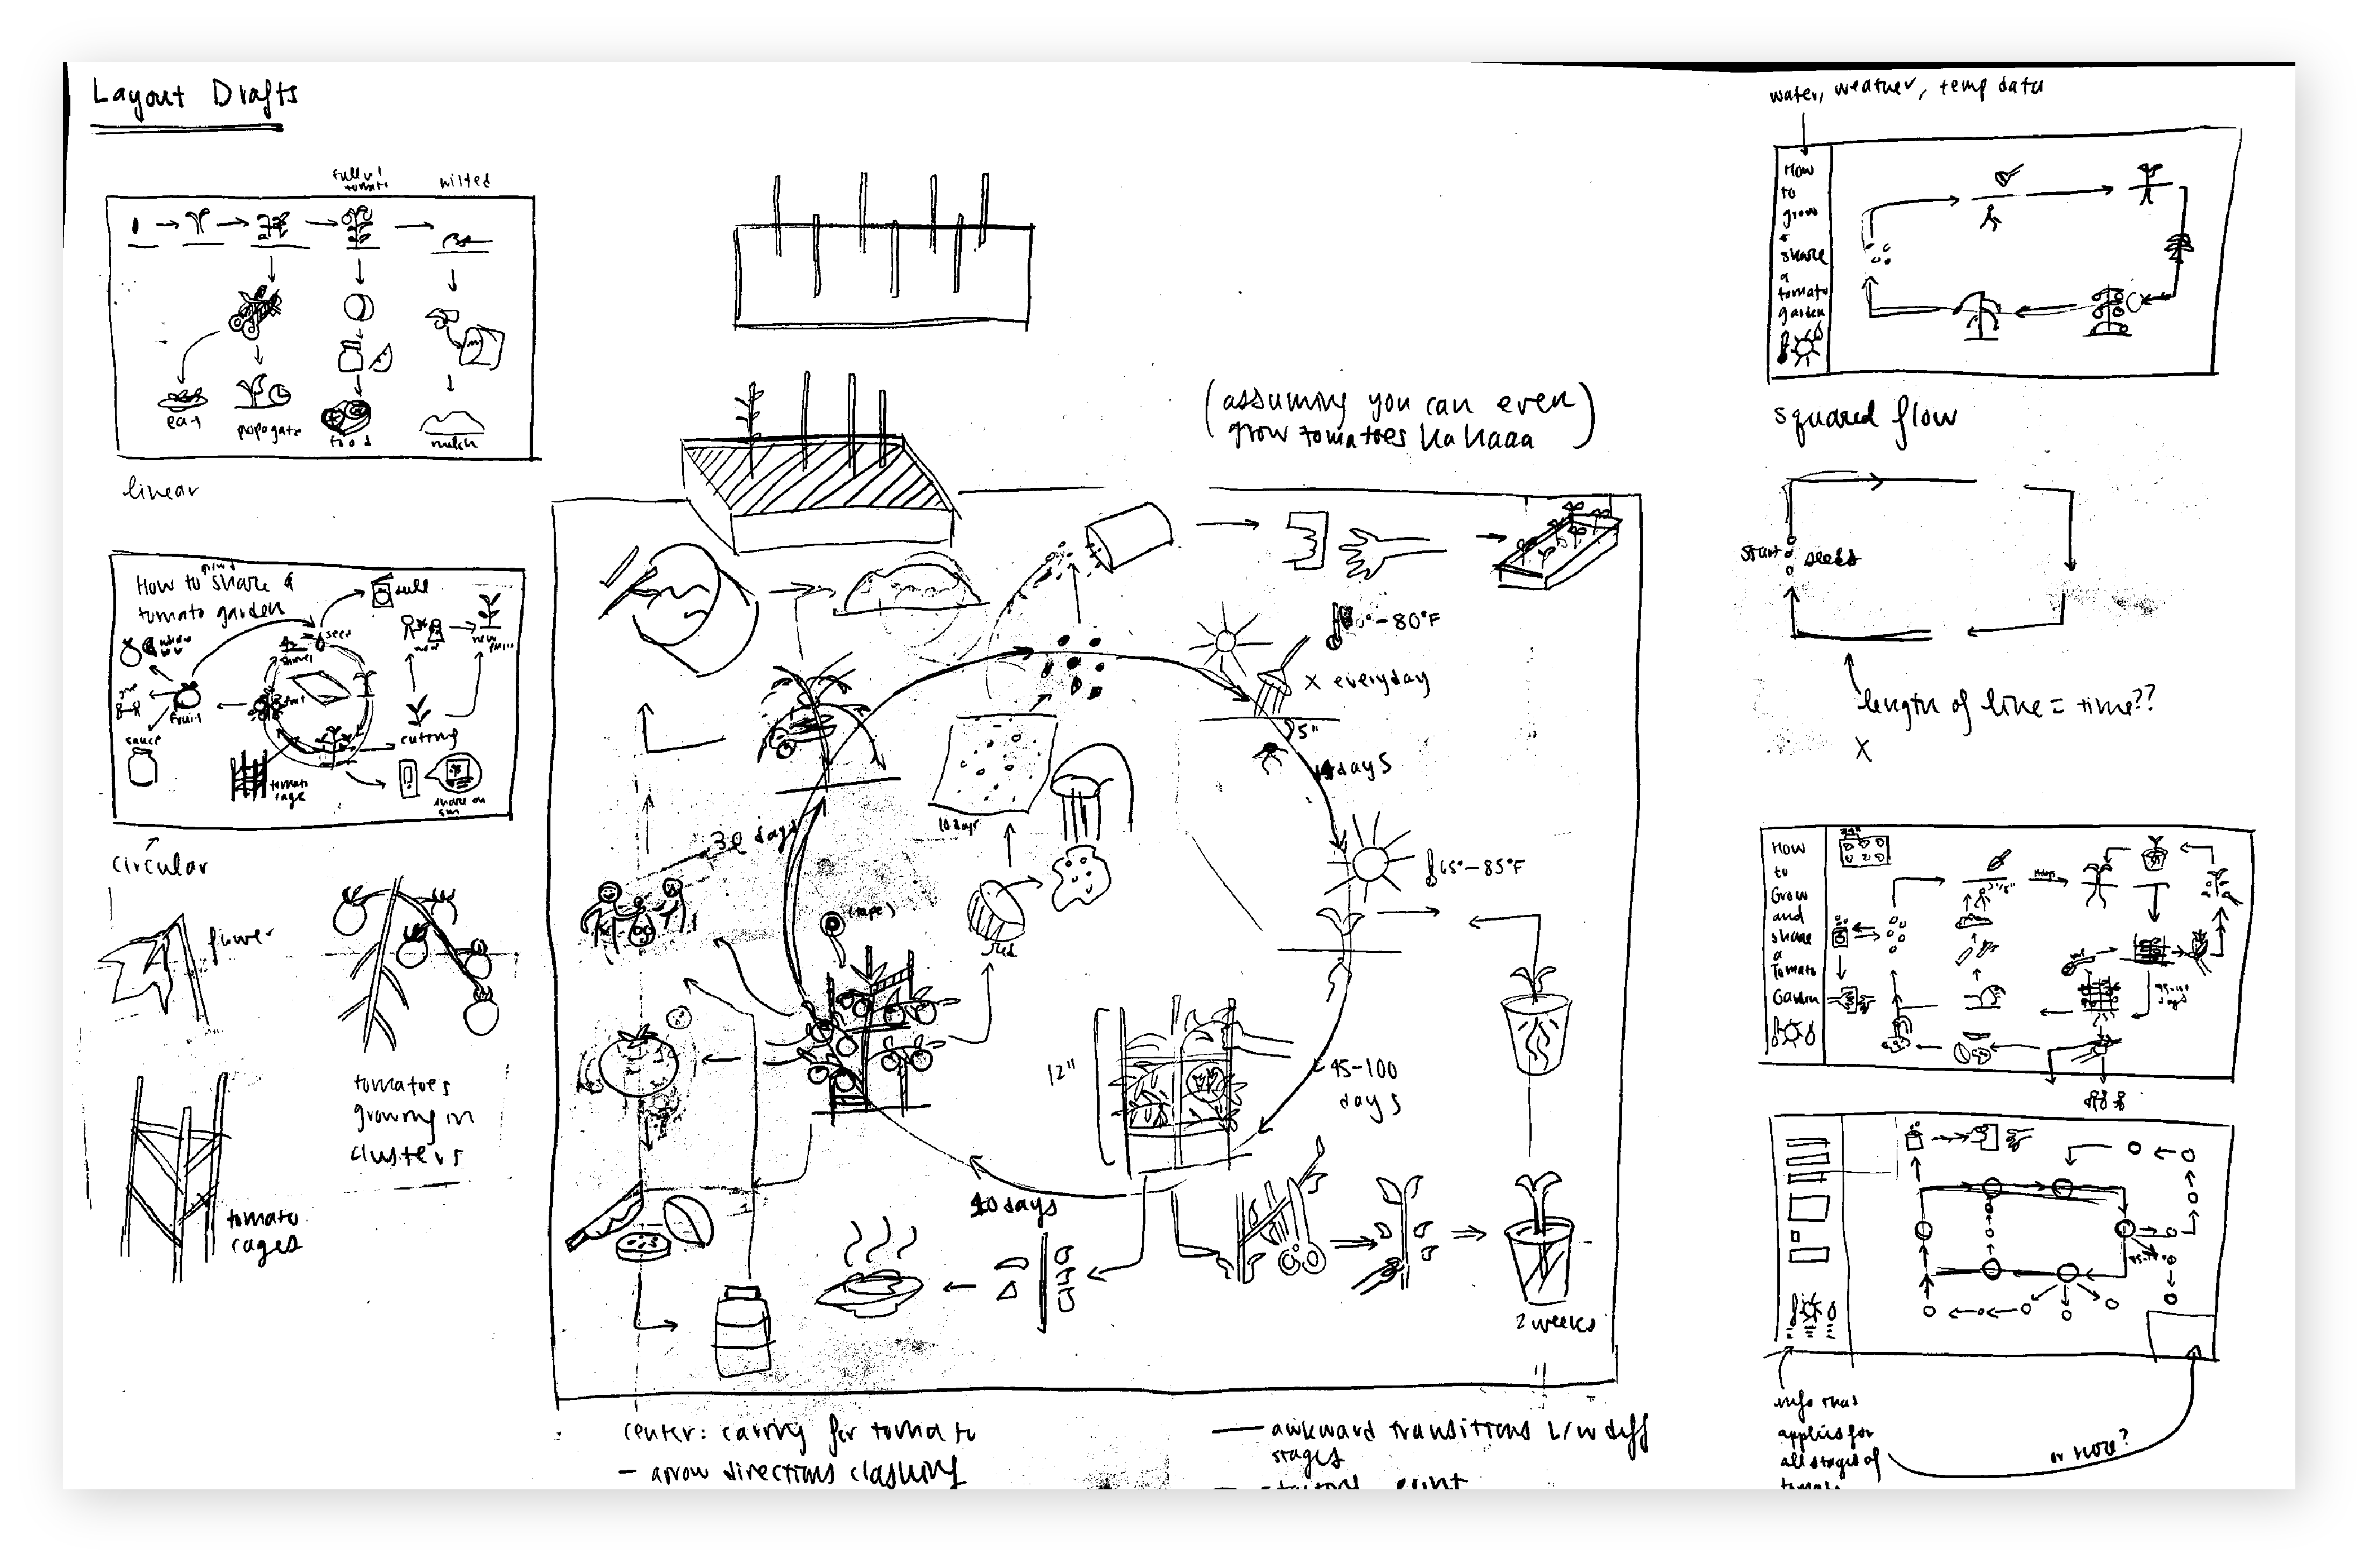 Layout Drafts
wilted
eat
propogate
food
mulch
linear
How to share a
grow
tomato garden
seed
fruit
sauce
cutting
tomato
cage
share on
circular
flower
tomatoes
growing in
clusters
tomato
cages
(assuming you can even
grow tomatoes hahaaa)
-80°F
x everyday
5"
days
65°-85°F
30 days
10 days
(tape)
12"
45-100
days
2 weeks
center: caring for tomato
- arrow directions clashing
— awkward transitions b/w diff
stages
water, weather, temp data
How
to
grow
+
share
a
tomato
garden
squared flow
start
seeds
length of line = time??
X
How
to
Grow
and
share
a
Tomato
Garden
info that
applies for
all stages of
tomato
or here?